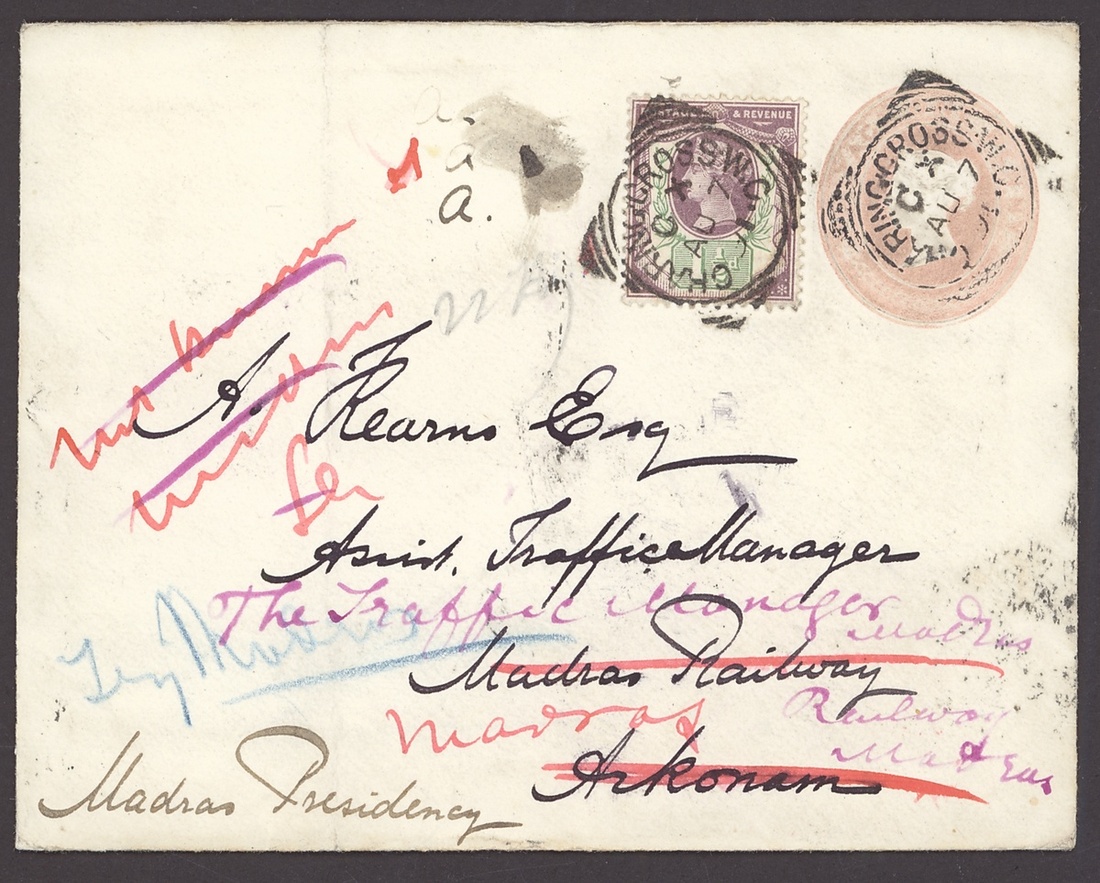 a.
a
A.
POSTAGE & REVENUE
1½d
CHARING CROSS W.C.
C X
AU 7
91
CHARING CROSS W.C.
C X
AU 7
91
not known
A. Kearns Esq
Assist. Traffic Manager
The Traffic Manager
Madras
Try Madras
Madras Railway
Railway
Madras
Madras
Arkonam
Madras Presidency